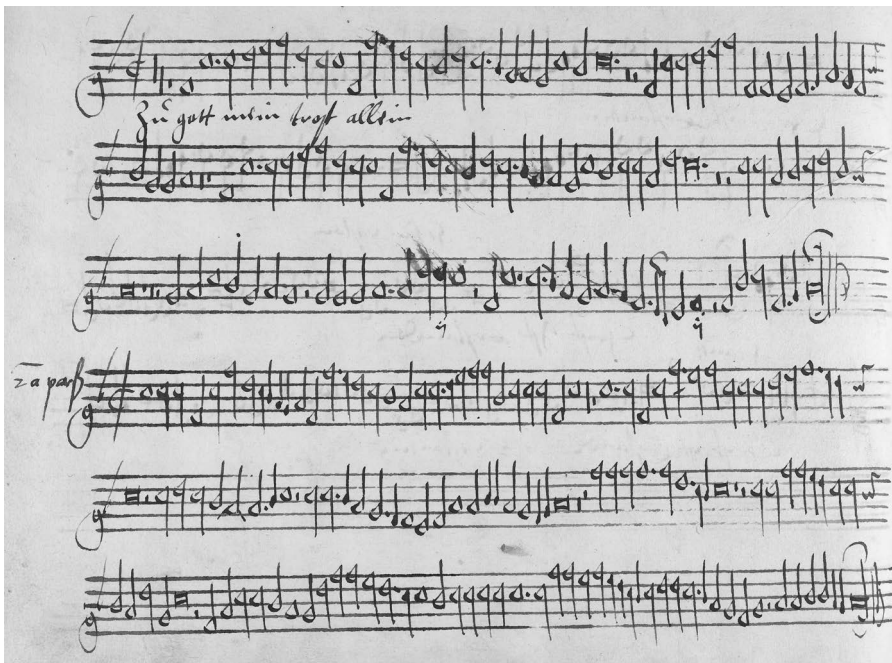 Zu gott mein trost allein
2a pars